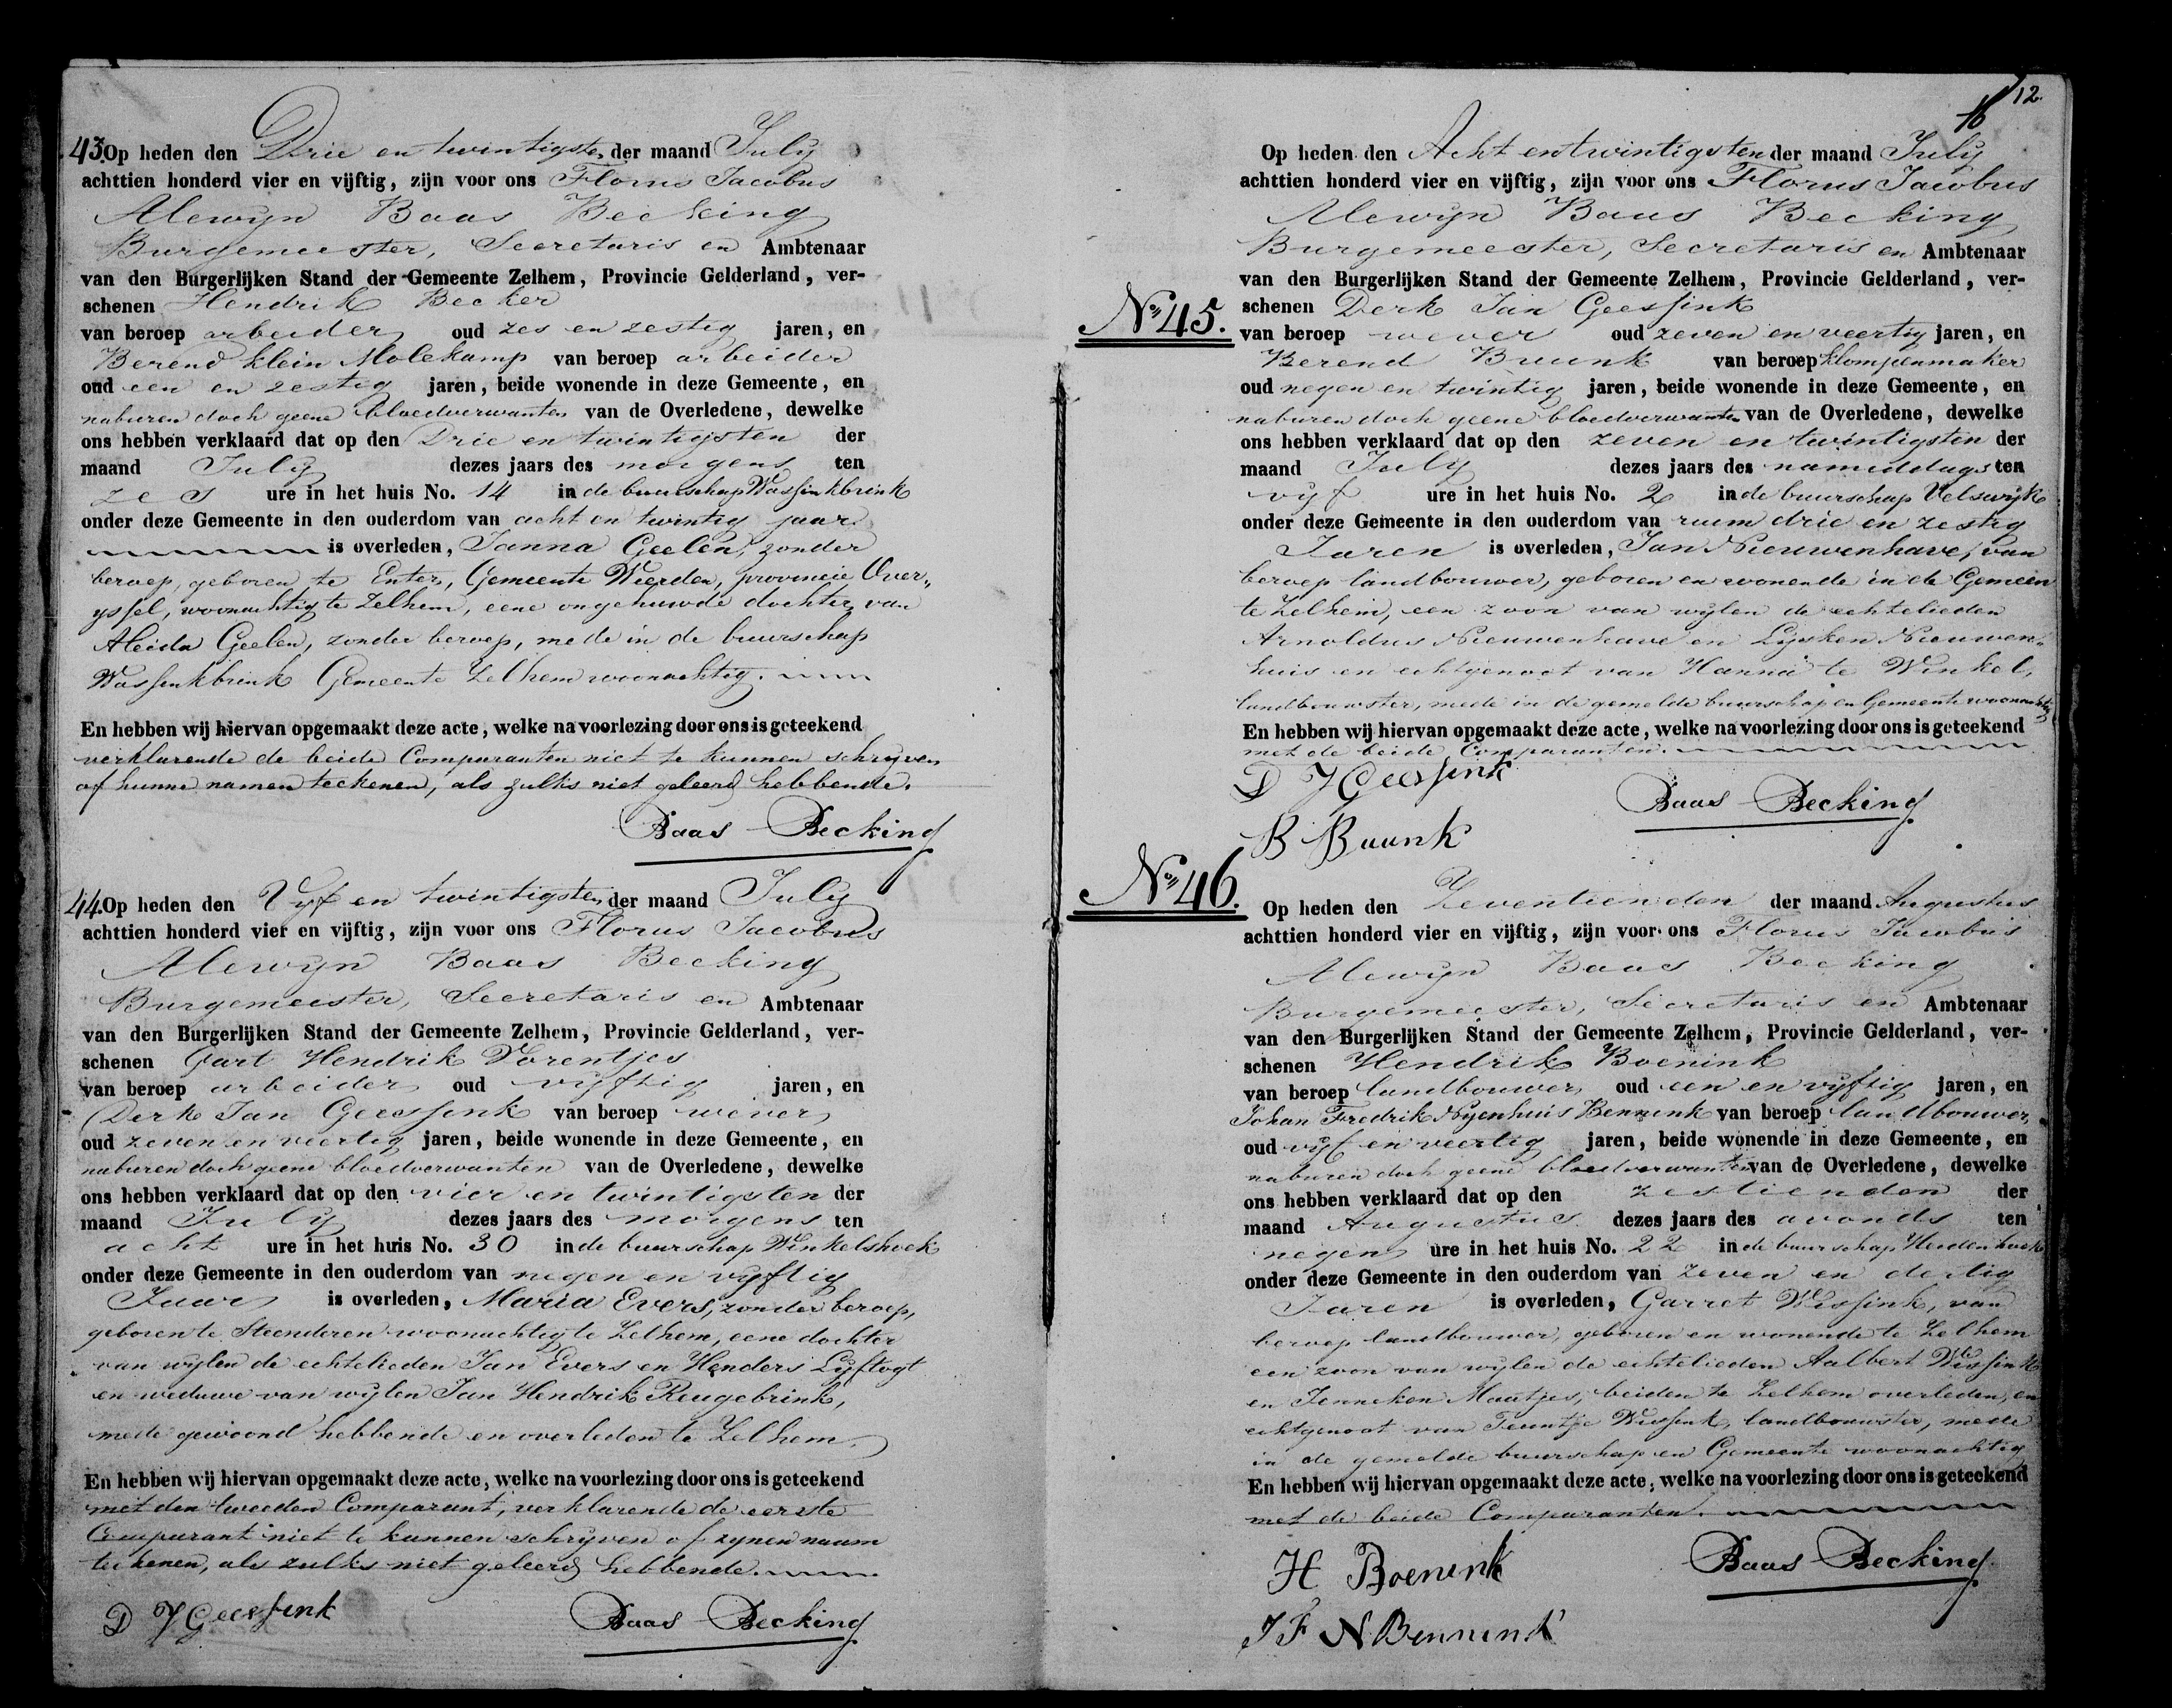 43. Op heden den Drie en twintigsten der maand July
achttien honderd vier en vijftig, zijn voor ons Florus Jacobus
Alewyn Baas Becking
Burgemeester, Secretaris en Ambtenaar
van den Burgerlijken Stand der Gemeente Zelhem, Provincie Gelderland, ver-
schenen Hendrik Becker
van beroep arbeider oud zes en zestig jaren, en
Berend klein Molekamp van beroep arbeider
oud een en zestig jaren, beide wonende in deze Gemeente, en
naburen doch geene bloedverwanten van de Overledene, dewelke
ons hebben verklaard dat op den Drie en twintigsten der
maand July dezes jaars des morgens ten
zes ure in het huis No. 14 in de buurschap Wassinkbrink
onder deze Gemeente in den ouderdom van acht en twintig jaar
is overleden, Janna Geelen, zonder
beroep, geboren te Enter, Gemeente Wierden, provincie Over-
yssel, woonachtig te Zelhem, eene ongehuwde dochter van
Aleida Geelen, zonder beroep, mede in de buurschap
Wassinkbrink Gemeente Zelhem woonachtig.
En hebben wij hiervan opgemaakt deze acte, welke na voorlezing door ons is geteekend
verklarende de beide Comparanten niet te kunnen schryven
of hunne namen teekenen, als zulks niet geleerd hebbende.
Baas Becking
44. Op heden den Vyf en twintigsten der maand July
achttien honderd vier en vijftig, zijn voor ons Florus Jacobus
Alewyn Baas Becking
Burgemeester, Secretaris en Ambtenaar
van den Burgerlijken Stand der Gemeente Zelhem, Provincie Gelderland, ver-
schenen Gart Hendrik Vorentjes
van beroep arbeider oud vyftig jaren, en
Derk Jan Geessink van beroep wever
oud zeven en veertig jaren, beide wonende in deze Gemeente, en
naburen doch geene bloedverwanten van de Overledene, dewelke
ons hebben verklaard dat op den vier en twintigsten der
maand July dezes jaars des morgens ten
acht ure in het huis No. 30 in de buurschap Winkelshoek
onder deze Gemeente in den ouderdom van negen en vyftig
Jaar is overleden, Maria Evers, zonder beroep,
geboren te Steenderen woonachtig te Zelhem, eene dochter
van wylen de echtelieden Jan Evers en Henders Lyftogt
en weduwe van wylen Jan Hendrik Reugebrink,
mede gewoond hebbende en overleden te Zelhem.
En hebben wij hiervan opgemaakt deze acte, welke na voorlezing door ons is geteekend
met den tweeden Comparant, verklarende de eerste
Comparant niet te kunnen schryven of zynen naam
teekenen, als zulks niet geleerd hebbende.
D J Geessink Baas Becking
12.
16
Op heden den Acht en twintigsten der maand July
achttien honderd vier en vijftig, zijn voor ons Florus Jacobus
Alewyn Baas Becking
Burgemeester, Secretaris en Ambtenaar
van den Burgerlijken Stand der Gemeente Zelhem, Provincie Gelderland, ver-
schenen Derk Jan Geessink
No 45. van beroep wever oud zeven en veertig jaren, en
Berend Buunk van beroep klompenmaker
oud negen en twintig jaren, beide wonende in deze Gemeente, en
naburen doch geene bloedverwanten van de Overledene, dewelke
ons hebben verklaard dat op den zeven en twintigsten der
maand July dezes jaars des namiddags ten
vyf ure in het huis No. 2 in de buurschap Velswyk
onder deze Gemeente in den ouderdom van ruim drie en zestig
Jaren is overleden, Jan Nieuwenhave, van
beroep landbouwer, geboren en wonende in de Gemeen
te Zelhem, een zoon van wylen de echtelieden
Arnoldus Nieuwenhave en Lysken Nieuwen-
huis en echtgenoot van Hanna te Winkel,
landbouwster, mede in de gemelde buurschap en Gemeente woonachtig
En hebben wij hiervan opgemaakt deze acte, welke na voorlezing door ons is geteekend
met de beide Comparanten.
D J Geessink
Baas Becking
B Buunk
No 46. Op heden den Zeventienden der maand Augustus
achttien honderd vier en vijftig, zijn voor ons Florus Jacobus
Alewyn Baas Becking
Burgemeester, Secretaris en Ambtenaar
van den Burgerlijken Stand der Gemeente Zelhem, Provincie Gelderland, ver-
schenen Hendrik Boenink
van beroep landbouwer oud een en vyftig jaren, en
Johan Fredrik Nyenhuis Bennink van beroep landbouwer,
oud vyf en veertig jaren, beide wonende in deze Gemeente, en
naburen doch geene bloedverwanten van de Overledene, dewelke
ons hebben verklaard dat op den zestienden der
maand Augustus dezes jaars des avonds ten
negen ure in het huis No. 22 in de buurschap Heidenhoek
onder deze Gemeente in den ouderdom van zeven en dertig
Jaren is overleden, Garret Wissink, van
beroep landbouwer, geboren en wonende te Zelhem
een zoon van wylen de echtelieden Aalbert Wissink
en Jenneken Maatjes, beiden te Zelhem overleden, en
echtgenoot van Teuntje Wissink, landbouwster, mede
in de gemelde buurschap en Gemeente woonachtig
En hebben wij hiervan opgemaakt deze acte, welke na voorlezing door ons is geteekend
met de beide Comparanten.
H Boenink Baas Becking
J F N Bennink